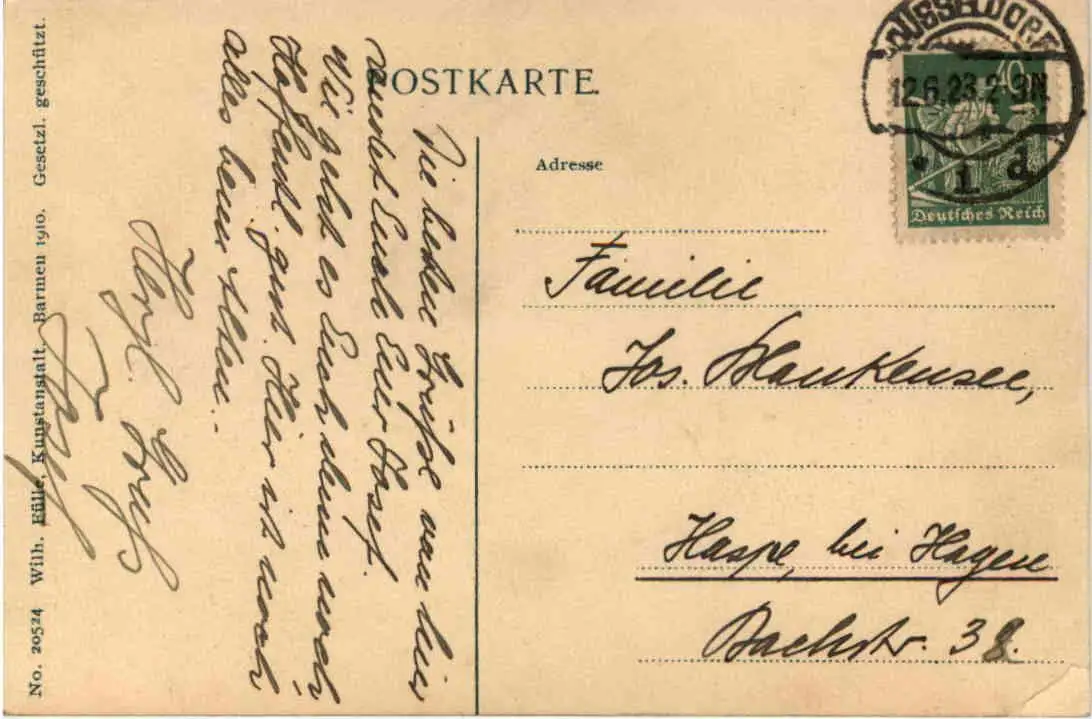 POSTKARTE.
Die besten Grüße von hier
sendet Euch Euer Josef.
Wie geht es Euch denn noch
Hoffentl. gut. Hier ist noch
alles beim Alten.
Herzl. Gruß
DÜSSELDORF
12.6.23.2-9N.
* 1 d
40
Deutsches Reich
Adresse
Familie
Jos. Blankensee,
Haspe, bei Hagen
Bachstr. 38.
No. 20524 Wilh. Fülle, Kunstanstalt, Barmen 1910. Gesetzl. geschützt.